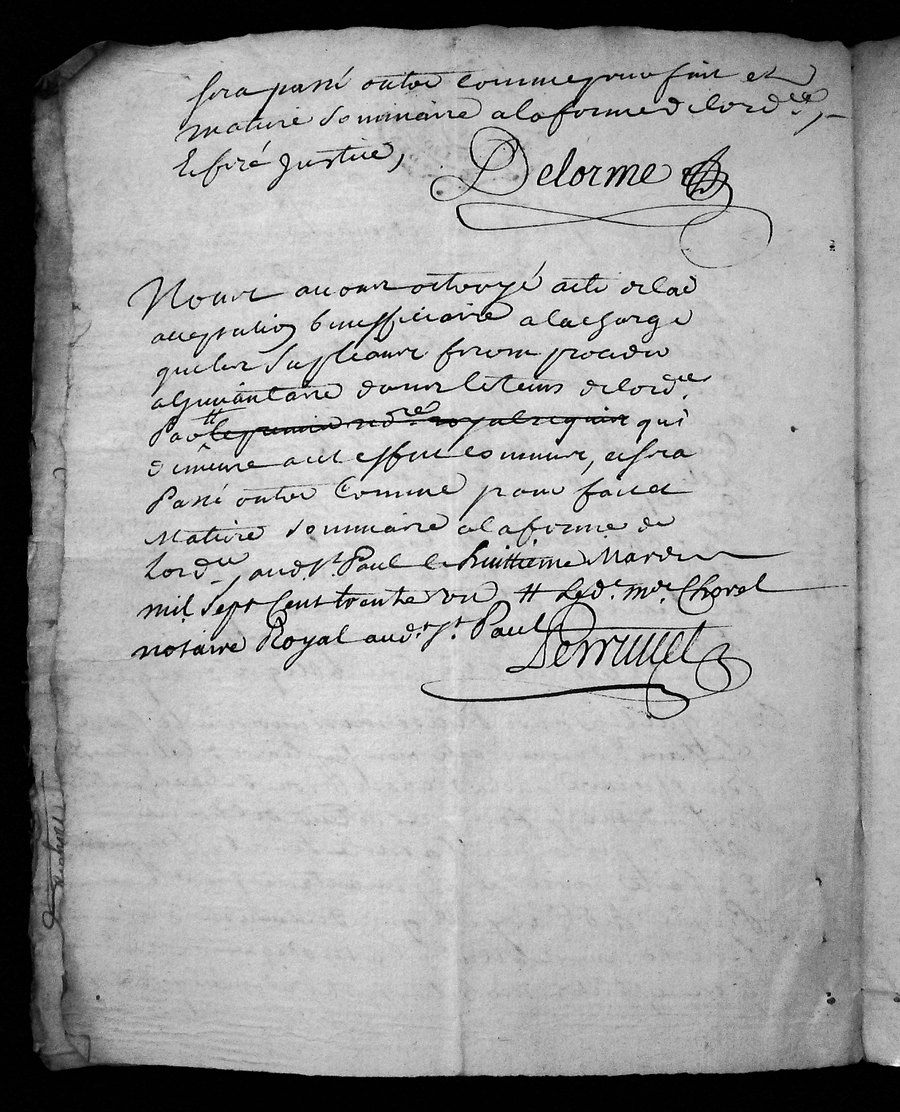 sera passé outre comme pour fait et
matiere sommaire a la forme de lord.ce,
& feré justice,
Delorme
Nous avons octroyé acte de lad
acceptation benefficiaire a la charge
que les supliants feront proceder
a linvantaire dans le tems de lord.ce
Par # le premier no.re royal requis qui
demeure a cet effet commis, et sera
Passé outre comme pour fait et
Matiere sommaire a la forme de
Lord.ce, aud. St. Paul le huittieme Mars
mil sept Cent trente un # Led.t m.e Chorel
notaire Royal aud.t St. Paul
Perrinet